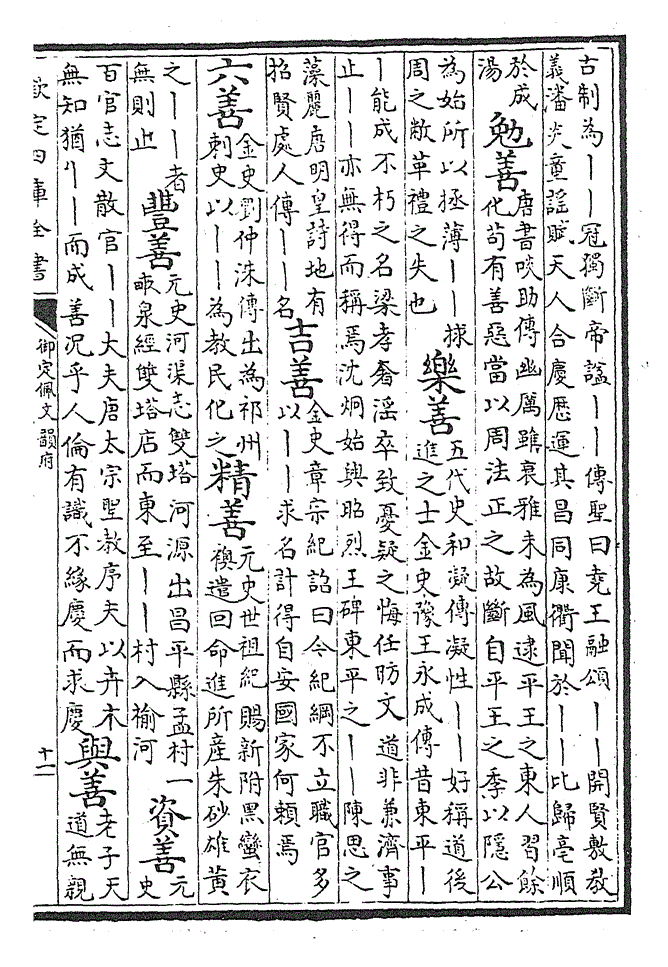 古制為丨丨冠獨斷帝謚丨丨傳聖曰堯王融頌丨丨開賢敷教
義潘炎童謠賦天人合慶歷運其昌同康衢聞於丨丨比歸亳順
於成
湯
勉善
唐書啖助傳幽厲雖衰雅未為風逮平王之東人習餘
化苟有善惡當以周法正之故斷自平王之季以隱公
為始所以拯薄丨丨捄
周之敝革禮之失也
樂善
五代史和凝傳凝性丨丨好稱道後
進之士金史豫王永成傳昔東平丨
丨能成不朽之名梁孝奢淫卒致憂疑之悔任昉文道非兼濟事
止丨丨亦無得而稱焉沈炯始興昭烈王碑東平之丨丨陳思之
藻麗唐明皇詩地有
招賢處人傳丨丨名
吉善
金史章宗紀詔曰今紀綱不立職官多
以丨丨求名計得自安國家何賴焉
六善
金史劉仲洙傳出為祁州
刺史以丨丨為教民化之
精善
元史世祖紀賜新附黑蠻衣
襖遣回命進所産朱砂雄黃
之丨丨者
無則止
豐善
元史河渠志雙塔河源出昌平縣孟村一
畝泉經雙塔店而東至丨丨村入榆河
資善
元
史
百官志文散官丨丨大夫唐太宗聖教序夫以卉木
無知猶丨丨而成善况乎人倫有識不緣慶而求慶
與善
老子天
道無親
欽定四庫全書
御定佩文韻府
十一